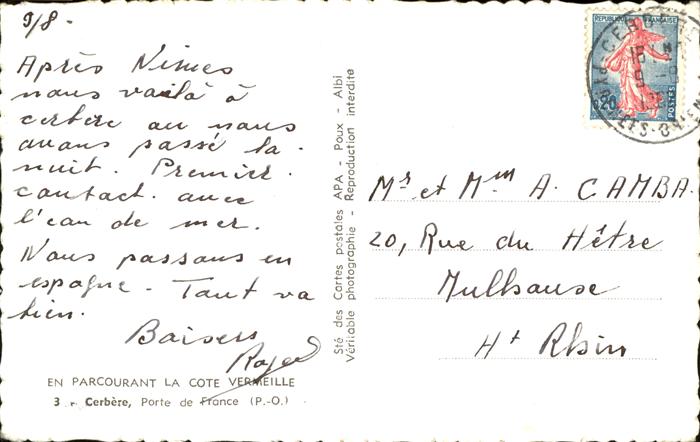 9/8 -
Après Nîmes
nous voilà à
cerbère ou nous
avons passé la
nuit. Premier
contact avec
l'eau de mer.
Nous passons en
espagne - Tout va
bien.
Baisers
Roger
EN PARCOURANT LA COTE VERMEILLE
3 Cerbère, Porte de France (P.-O.)
Sté des Cartes postales APA - Poux - Albi
Véritable photographie - Reproduction interdite
REPUBLIQUE FRANÇAISE
0,20
POSTES
CERBERE
PYRENEES-ORIENTALES
Mr et Mme A. CAMBA
20, Rue du Hêtre
Mulhouse
Ht Rhin